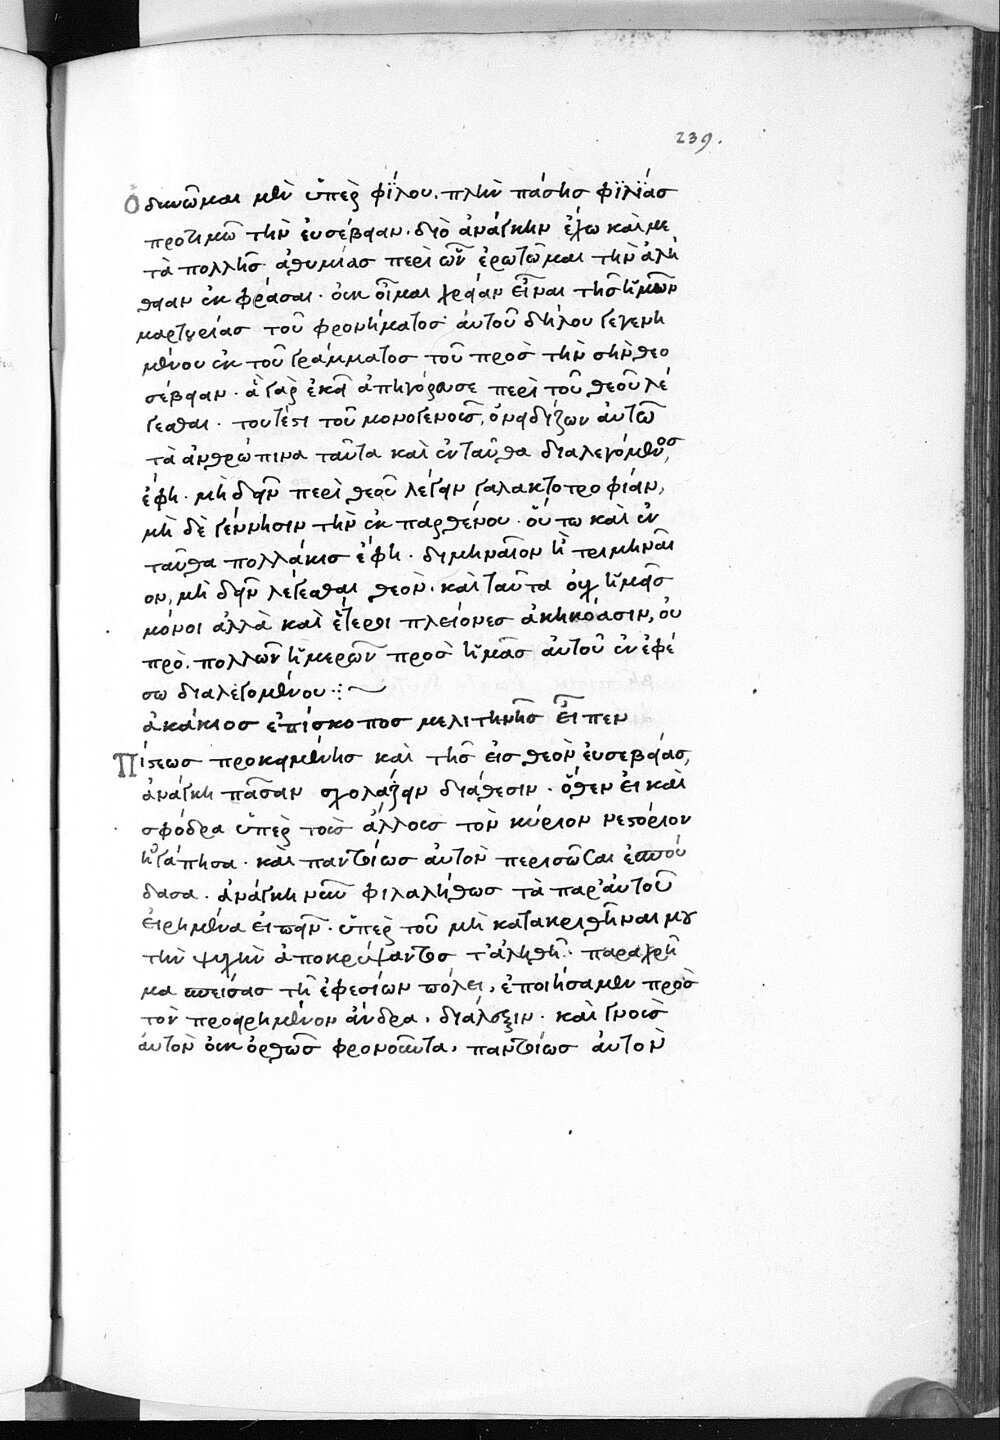 239.
ὀδυνῶμαι μὲν ὑπὲρ φίλου. πλὴν πάσης φϊλίας
προτιμῶ τὴν εὐσέβειαν. διὸ ἀνάγκην ἔχω καὶ με
τὰ πολλῆς ἀθυμίας περὶ ὧν ἐρωτῶμαι τὴν ἀλή
θειαν ἐκφράσαι. οὐκ οἶμαι χρείαν εἶναι τῆς ἡμῶν
μαρτυρίας τοῦ φρονήματος αὐτοῦ δήλου γεγενη
μένου ἐκ τοῦ γράμματος τοῦ πρὸς τὴν σὴν θεο
σέβειαν. ἃ γὰρ ἐκεῖ ἀπηγόρευσε περὶ τοῦ θεοῦ λέ
γεσθαι. τουτέστι τοῦ μονογενοῦς, ὀνειδίζων αὐτῶ
τὰ ἀνθρώπινα ταῦτα καὶ ἐνταῦθα διαλεγόμενος,
ἔφη. μὴ δεῖν περὶ θεοῦ λέγειν γαλακτοτροφίαν,
μὴ δὲ γέννησιν τὴν ἐκ παρθένου. οὕτω καὶ ἐν
ταῦθα πολλάκις ἔφη. διμηναῖον ἢ τριμηναῖ
ον, μὴ δεῖν λέγεσθαι θεὸν. καὶ ταῦτα οὐχ ἡμεῖς
μόνοι ἀλλὰ καὶ ἕτεροι πλείονες ἀκηκόασιν, οὐ
πρὸ πολλῶν ἡμερῶν πρὸς ἡμᾶς αὐτοῦ ἐν ἐφέ
σω διαλεγομένου :~
ἀκάκιος ἐπίσκοπος μελιτηνῆς εἶπεν
Πίστεως προκειμένης καὶ τῆς εἰς θεὸν εὐσεβείας,
ἀνάγκη πᾶσαν σχολάζειν διάθεσιν. ὅθεν εἰ καὶ
σφόδρα ὑπὲρ τοὺς ἄλλους τὸν κύριον νεστόριον
ἠγάπησα. καὶ παντοίως αὐτὸν περισῶσαι ἐσπού
δασα. ἀνάγκη νῦν φιλαλήθως τὰ παρ' αὐτοῦ
εἰρημένα εἰπεῖν. ὑπὲρ τοῦ μὴ κατακριθῆναι μου
τὴν ψυχὴν ἀποκρύψαντος τ' ἀληθῆ. παραχρῆ
μα ἐπείσας τῆ ἐφεσίων πόλει, ἐποιήσαμεν πρὸς
τὸν προειρημένον ἄνδρα, διάλεξιν. καὶ γνοὺς
αὐτὸν οὐκ ὀρθῶς φρονοῦντα, παντοίως αὐτὸν